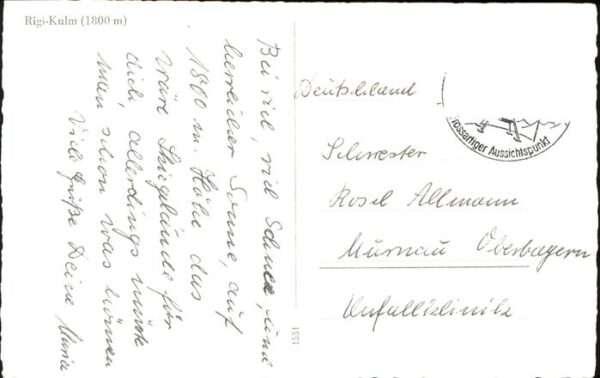 Rigi-Kulm (1800 m)
Bei viel, viel Schnee, und
herrlicher Sonne, auf
1800 m. Höhe das
wäre Skigelände für
dich, allerdings müsste
man schon was können
Viele Grüße Deine Maria
Deutschland!
Grossartiger Aussichtspunkt
Schwester
Rosel Allmann
Murnau Oberbayern
Unfallklinik
1551